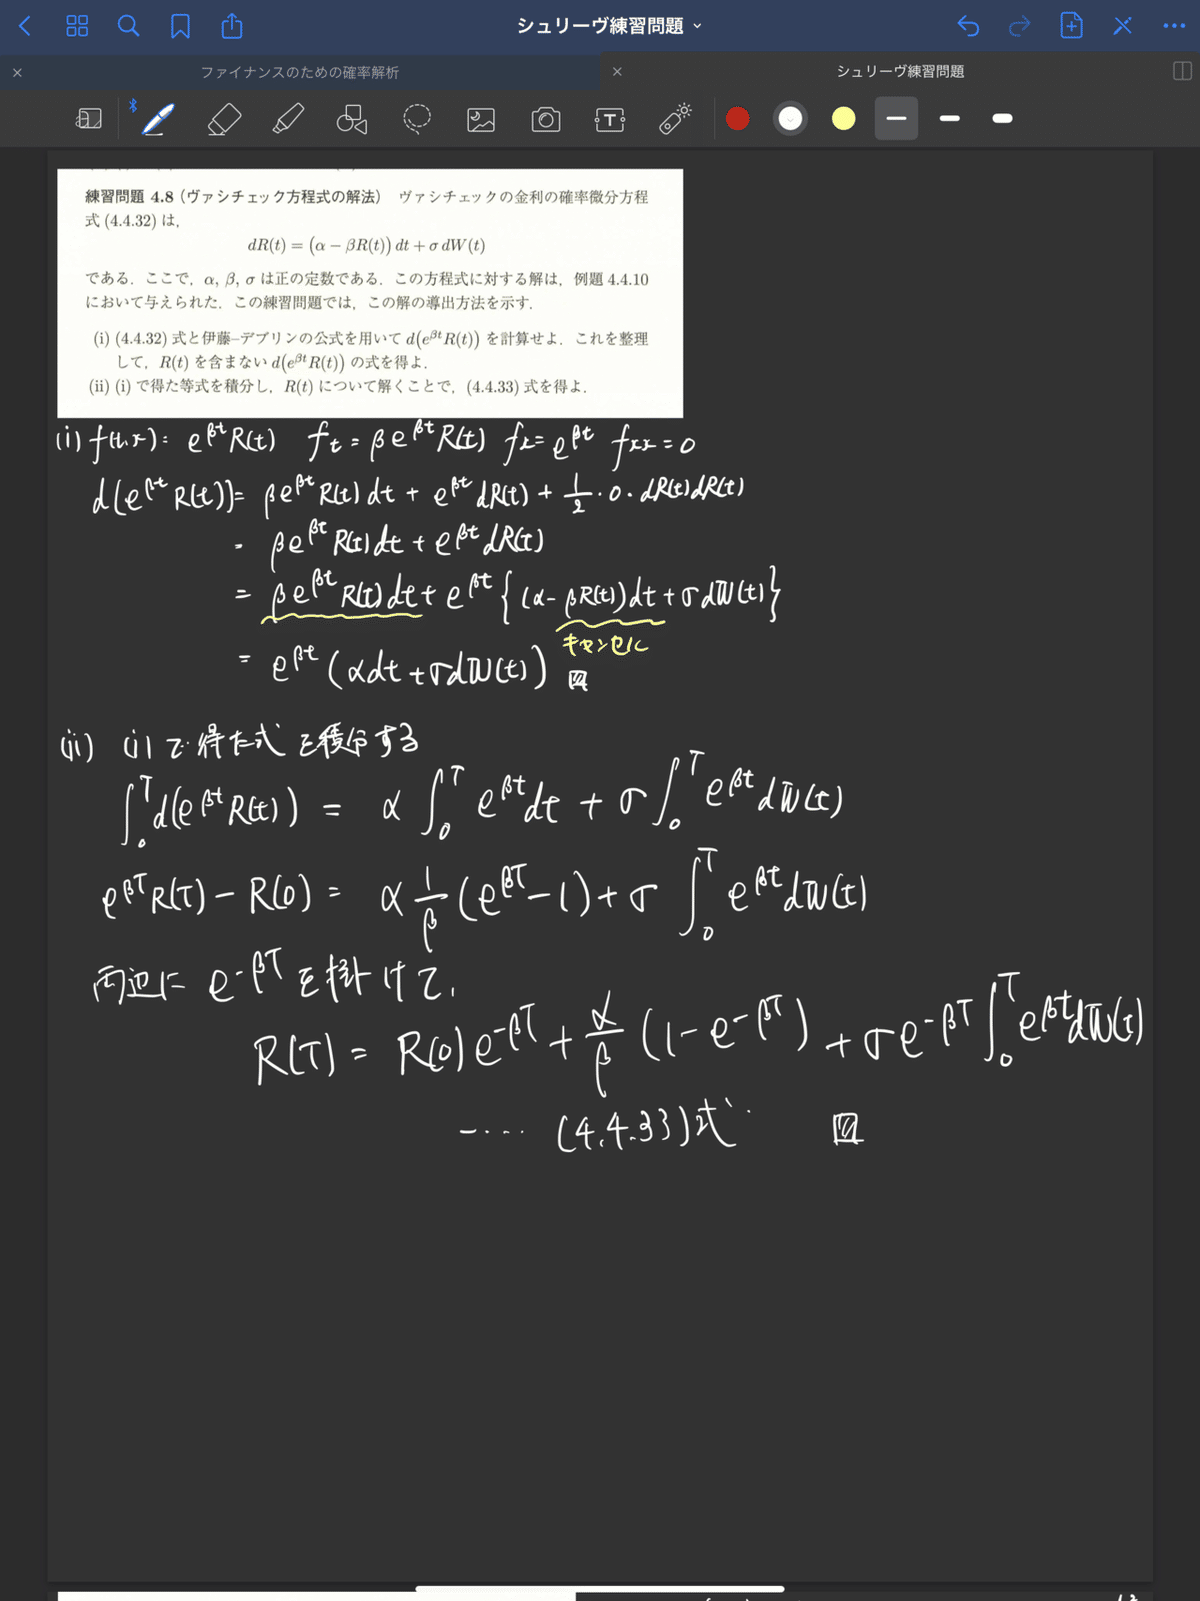 シュリーヴ練習問題
ファイナンスのための確率解析
シュリーヴ練習問題
練習問題 4.8(ヴァシチェック方程式の解法) ヴァシチェックの金利の確率微分方程
式 (4.4.32) は,
dR(t) = (α − βR(t)) dt + σ dW(t)
である.ここで,α, β, σ は正の定数である.この方程式に対する解は,例題 4.4.10
において与えられた.この練習問題では,この解の導出方法を示す.
(i) (4.4.32) 式と伊藤–デブリンの公式を用いて d(e^{βt}R(t)) を計算せよ.これを整理
して,R(t) を含まない d(e^{βt}R(t)) の式を得よ.
(ii) (i) で得た等式を積分し,R(t) について解くことで,(4.4.33) 式を得よ.
(i) f(t,x) = e^{βt}R(t) f_t = βe^{βt}R(t) f_x = e^{βt} f_{xx} = 0
d(e^{βt}R(t)) = βe^{βt}R(t)dt + e^{βt}dR(t) + 1/2・0・dR(t)dR(t)
= βe^{βt}R(t)dt + e^{βt}dR(t)
= βe^{βt}R(t)dt + e^{βt}{(α−βR(t))dt + σdW(t)}
キャンセル
= e^{βt}(αdt + σdW(t))
(ii) (i)で得た式を積分する
∫_0^T d(e^{βt}R(t)) = α∫_0^T e^{βt}dt + σ∫_0^T e^{βt}dW(t)
e^{βT}R(T) − R(0) = α 1/β (e^{βT}−1) + σ∫_0^T e^{βt}dW(t)
両辺に e^{-βT} を掛けて,
R(T) = R(0)e^{-βT} + α/β (1−e^{-βT}) + σe^{-βT}∫_0^T e^{βt}dW(t)
‥‥ (4.4.33)式.